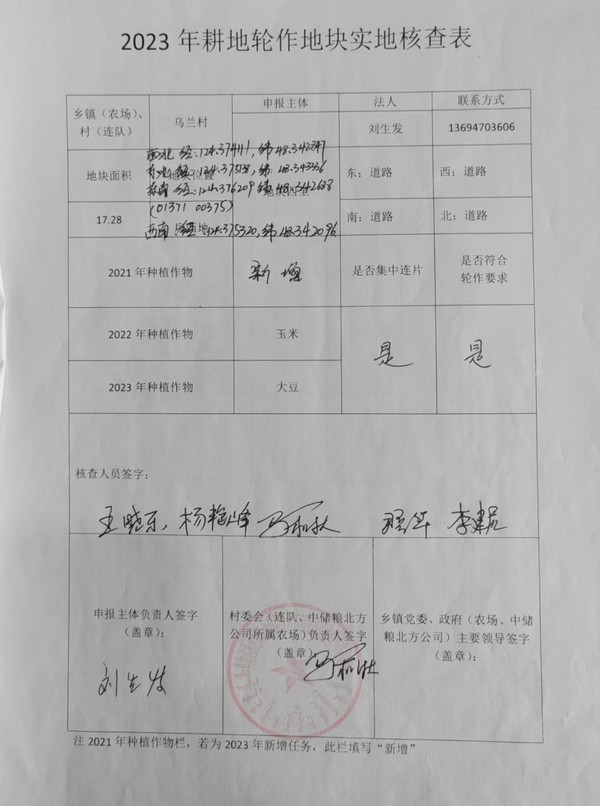 2023 年耕地轮作地块实地核查表
乡镇（农场）、村（连队）
乌兰村
申报主体
法人
联系方式
刘生发
13694703606
地块面积
西北 经:124.37441,纬48.342347
东:道路
西:道路
17.28
(01371 00375)
西南:经:124.375320,纬48.342096
南:道路
北:道路
2021 年种植作物
新增
是否集中连片
是否符合轮作要求
2022 年种植作物
玉米
是
是
2023 年种植作物
大豆
核查人员签字:
王晓东,杨艳峰
申报主体负责人签字
（盖章）:
刘生发
村委会（连队、中储粮北方
公司所属农场）负责人签字
（盖章）
乡镇党委、政府（农场、中储
粮北方公司）主要领导签字
（盖章）:
注 2021 年种植作物栏，若为 2023 年新增任务，此栏填写“新增”